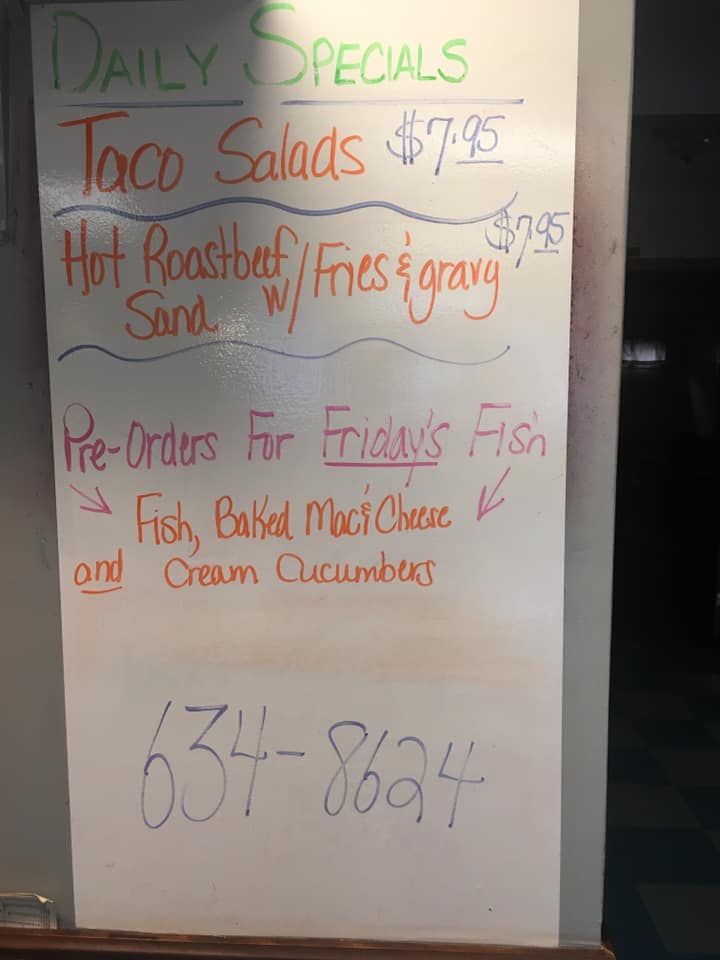 Daily Specials
Taco Salads $7.95
$7.95
Hot Roastbeef w/ Fries & gravy
Sand
Pre-Orders For Friday's Fish
Fish, Baked Mac & Cheese
and Cream Cucumbers
634-8624